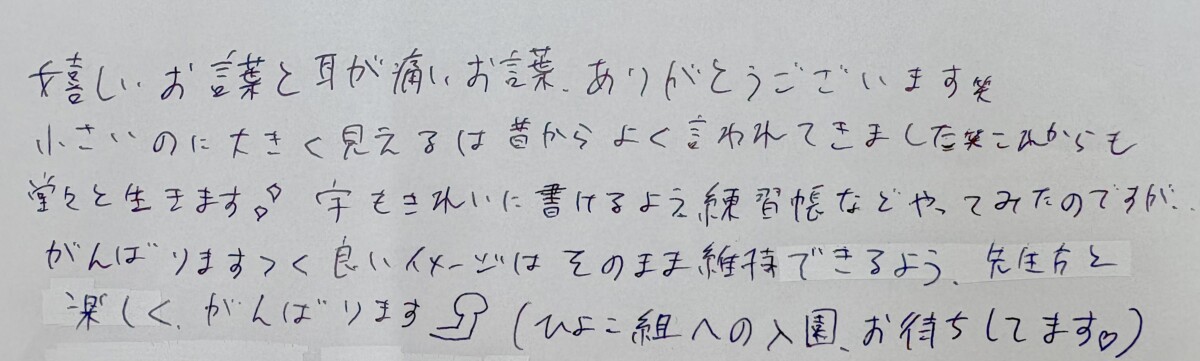 嬉しいお言葉と耳が痛いお言葉、ありがとうございます笑
小さいのに大きく見えるは昔からよく言われてきました笑これからも
堂々と生きます♡♡ 字もきれいに書けるよう練習帳などやってみたのですが..
がんばりますっく良いイメージはそのまま維持できるよう、先生方と
楽しく、がんばります (ひよこ組への入園、お待ちしてます♡)